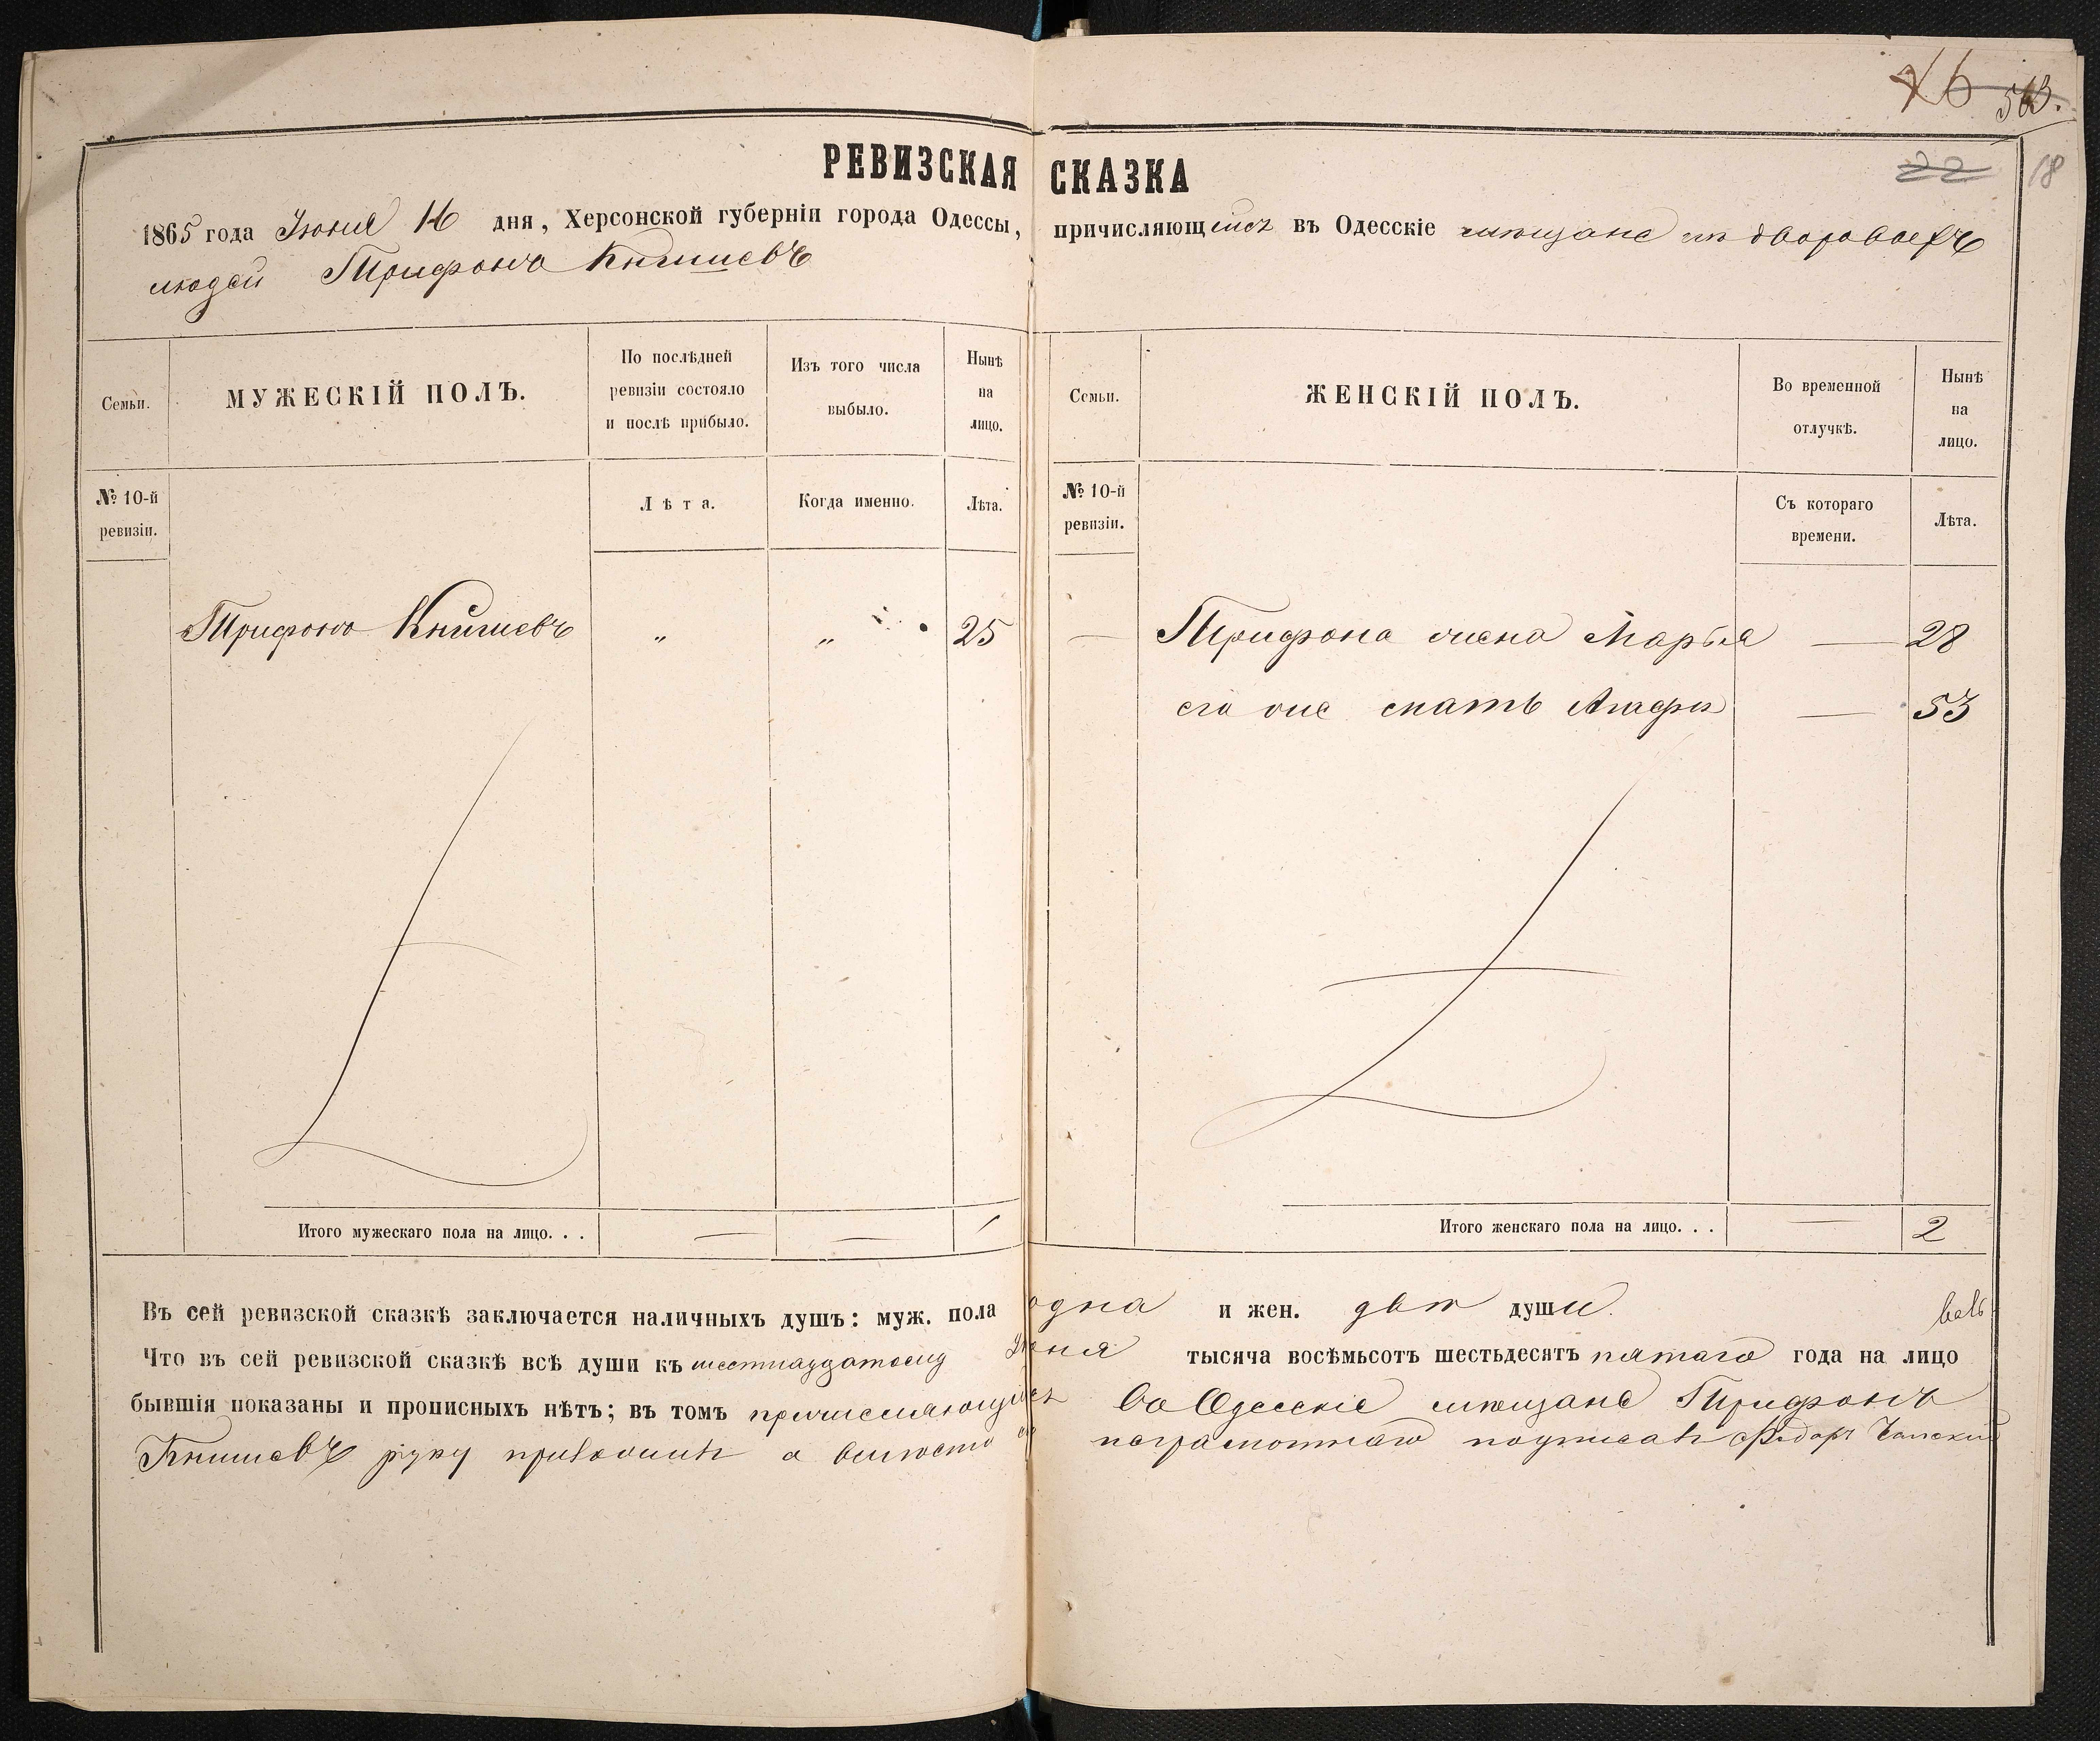 16 563.
РЕВИЗСКАЯ СКАЗКА
22 18
1865 года Іюня 16 дня, Херсонской губерніи города Одессы, причисляющійся въ Одесскіе мѣщане изъ дворовыхъ
людей Трифонъ Книшевъ
Семьи.
МУЖЕСКІЙ ПОЛЪ.
По послѣдней ревизіи состояло и послѣ прибыло.
Изъ того числа выбыло.
Нынѣ на лицо.
Семьи.
ЖЕНСКІЙ ПОЛЪ.
Во временной отлучкѣ.
Нынѣ на лицо.
№ 10-й ревизіи.
Лѣта.
Когда именно.
Лѣта.
№ 10-й ревизіи.
Съ котораго времени.
Лѣта.
Трифонъ Книшевъ " " 25 — Трифона жена Марья — 28
его же мать Агафія — 53
Итого мужескаго пола на лицо. . . — — 1 Итого женскаго пола на лицо. . . — 2
Въ сей ревизской сказкѣ заключается наличныхъ душъ: муж. пола одна и жен. двѣ души.
Что въ сей ревизской сказкѣ всѣ души къ шестнадцатому Іюня тысяча восѣмьсотъ шестьдесятъ пятаго года на лицо
бывшія показаны и прописныхъ нѣтъ; въ томъ причисляющійся въ Одесскіе мѣщане Трифонъ
Книшевъ руку приложилъ а вмѣсто его неграмотнаго подписалъ Федоръ